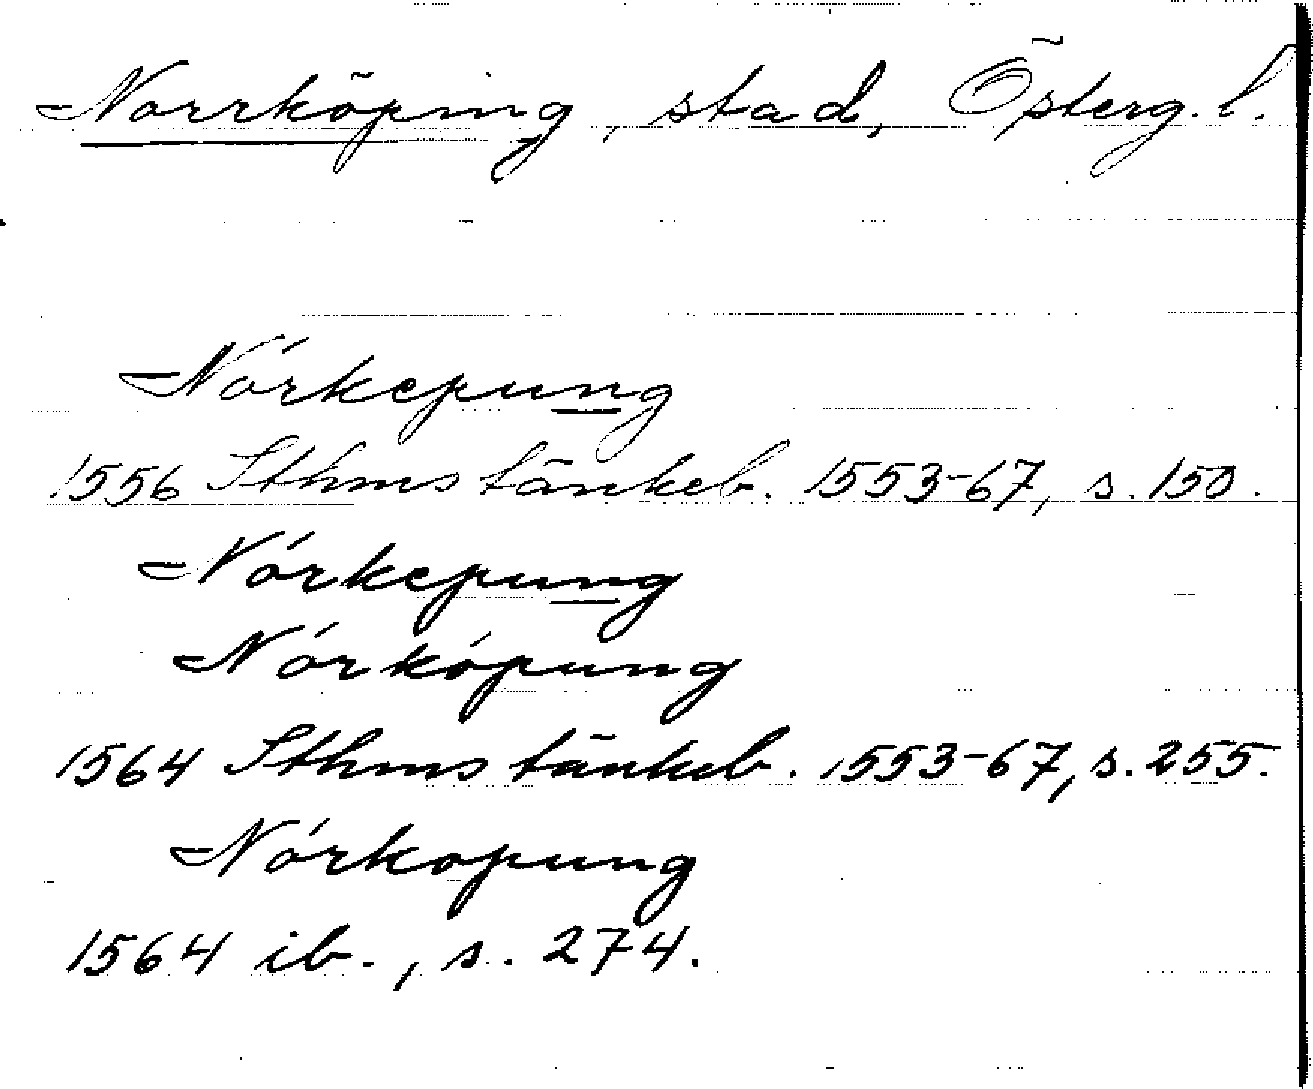 Norrköping, stad, Österg. l.
Nórkepung
1556 Sthms tänkeb. 1553-67, s. 150.
Nórkepung
Nórkópung
1564 Sthms tänkeb. 1553-67, s. 255.
Nórkopung
1564 ib., s. 274.